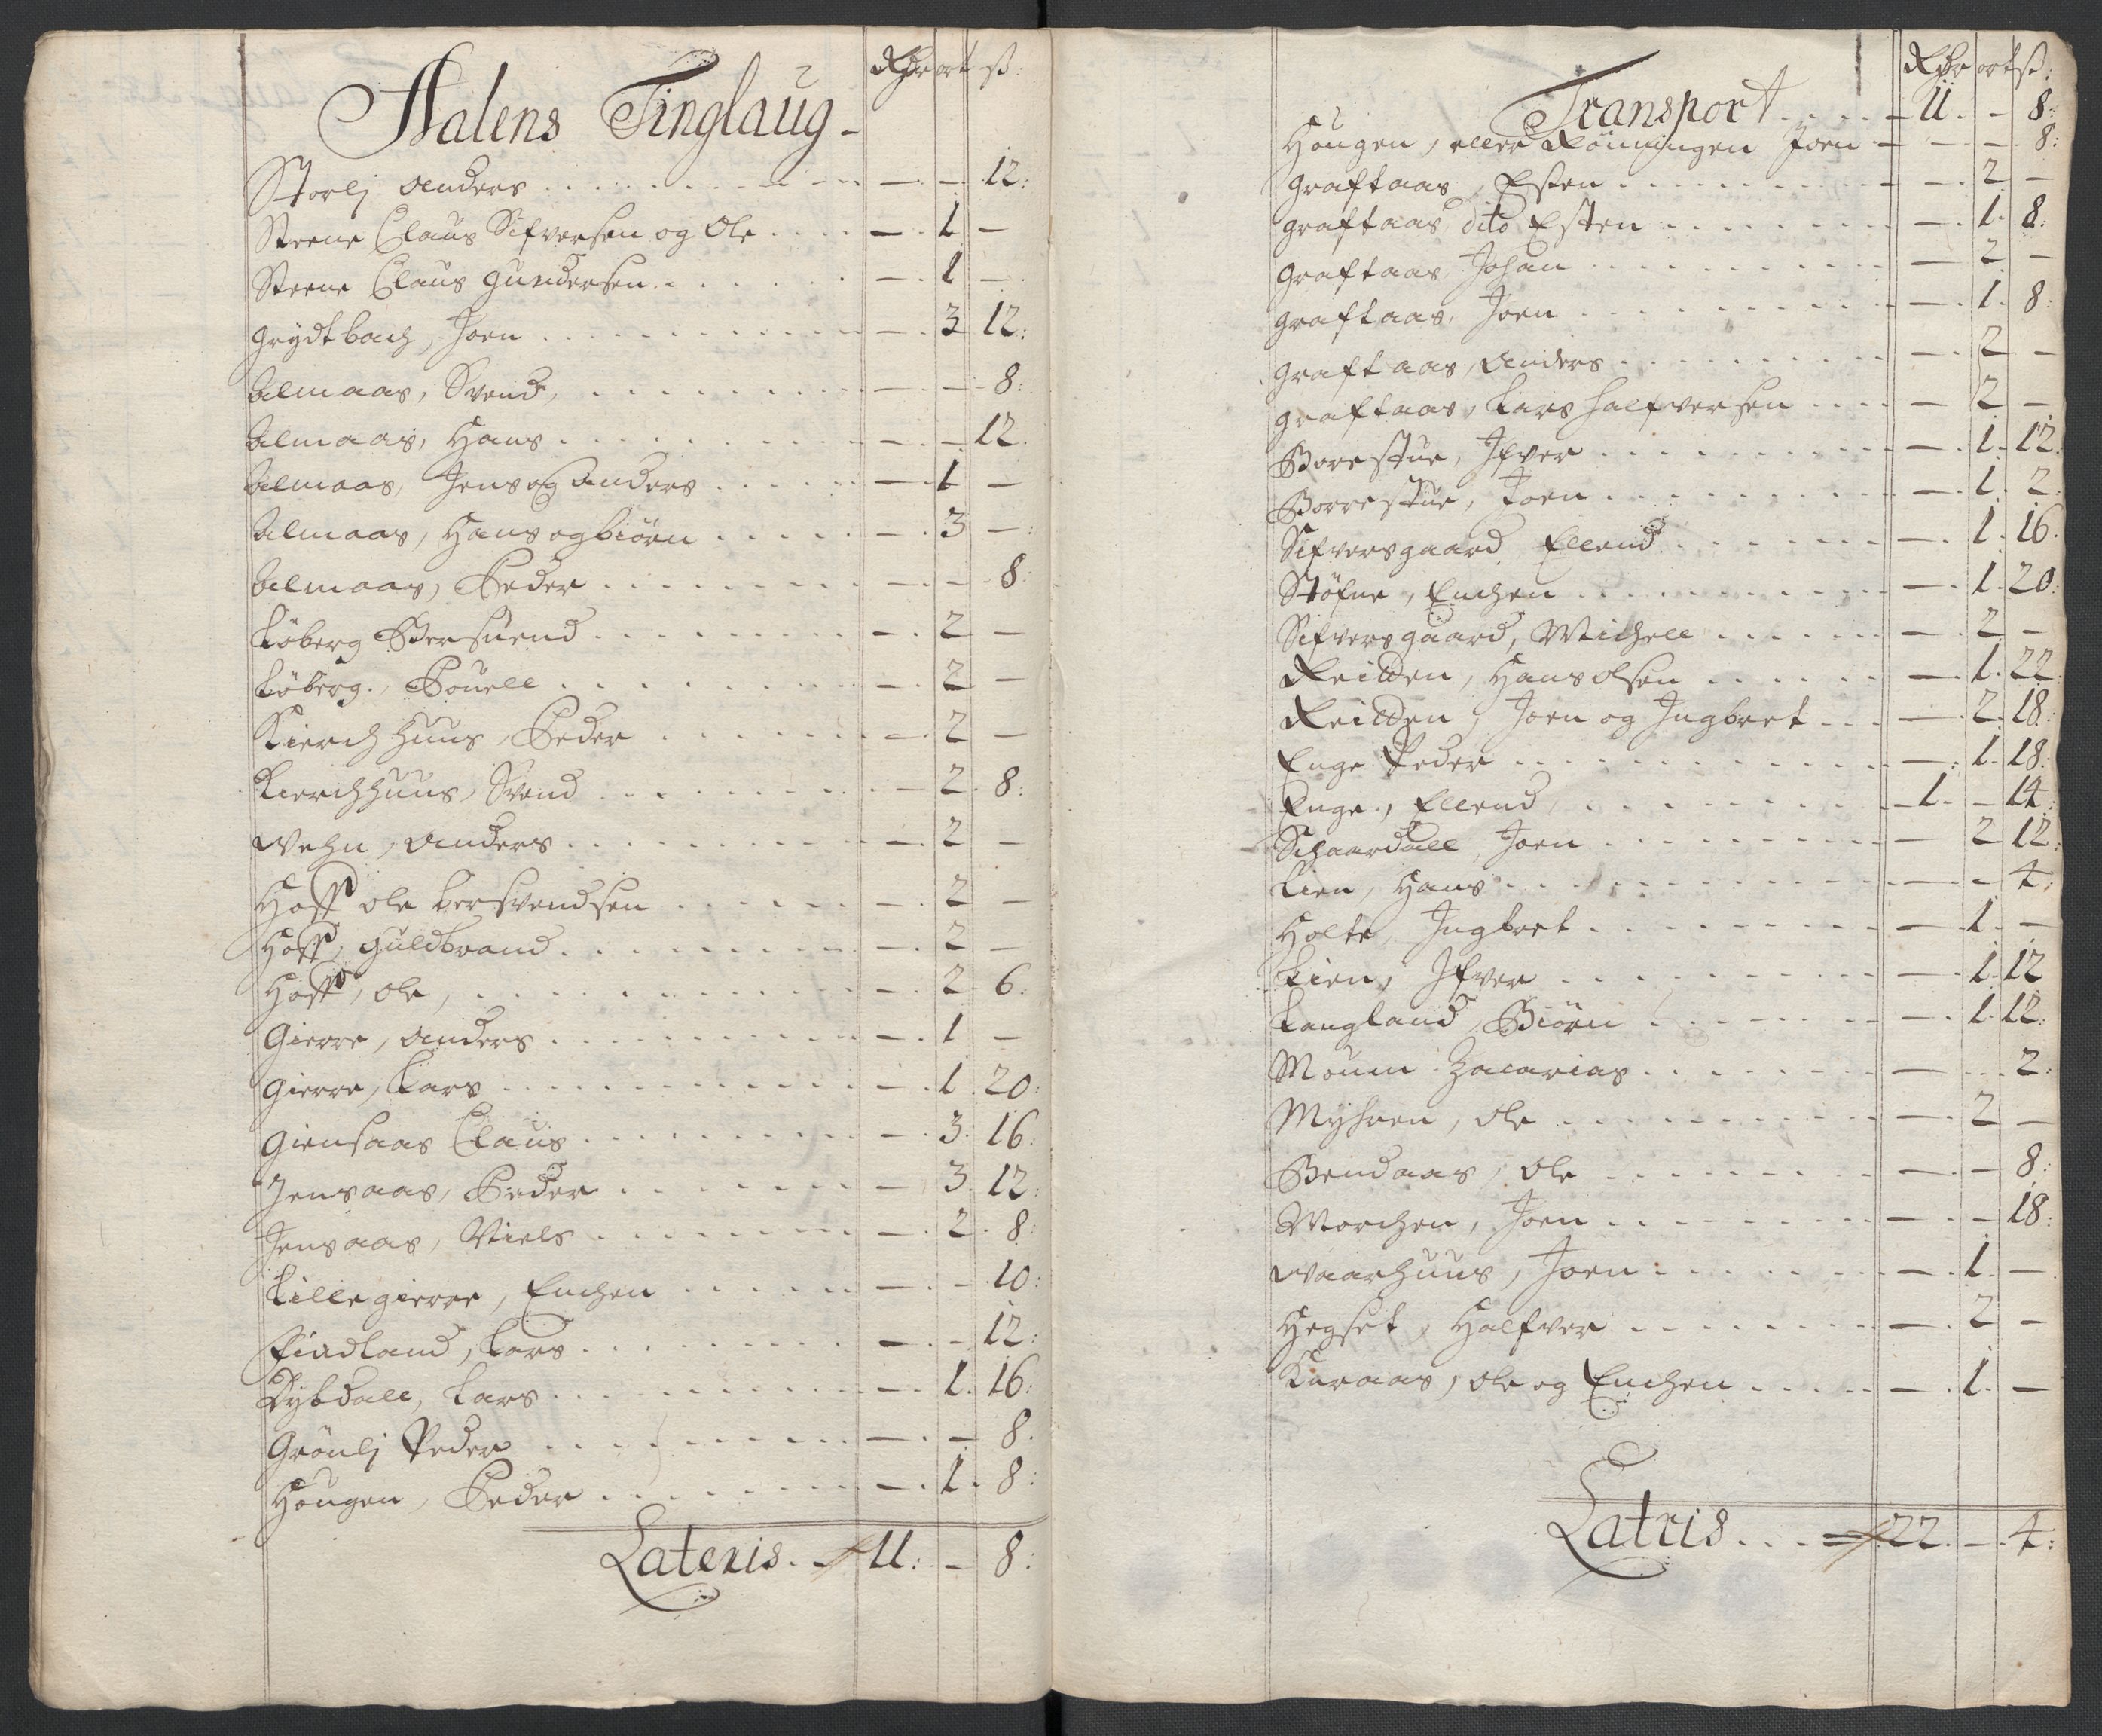 Aalens Tinglaug - Rdr ort ß:
Storlj Anders . . . - - 12:
Steene Claus Sifversen og Ole . . . - 1 -
Steene Claus Gundersen . . . - 1 -
Grydtbach, Joen . . . - 3 12:
Almaas, Svend, . . . - - 8:
Almaas, Hans . . . - - 12.
Almaas, Jens og Anders . . . - 1 -
Almaas, Hans og Biörn . . . - 3 -
Almaas, Peder . . . - - 8:
Löberg Bersuend . . . - 2 -
Löberg, Pouell . . . - 2 -
Kierchhuus, Peder . . . - 2 -
Kierchhuus, Svend . . . - 2 8:
Wehn, Anders . . . - 2 -
Hoff Ole Bersvendsen . . . - 2 -
Hoff, Guldbrand . . . - 2 -
Hoff, Ole, . . . - 2 6:
Gierre, Anders . . . - 1 -
Gierre, Lars . . . - 1 20:
Giensaas Claus . . . - 3 16:
Jensaas, Peder . . . - 3 12:
Jensaas, Niels . . . - 2 8:
Lillegierre, Enchen . . . - - 10:
Finland, Lars . . . - - 12:
Dybdall, Lars . . . - 1 16:
Grönlj Peder . . . - - 8.
Hougen, Peder . . . - 1 8:
Lateris . - 11: - 8:
Rdr ort ß:
Transport . . . - 11 - 8:
Hougen, eller Rönningen Joen - - - 8:
Graftaas, Esten . . . - 2 -
Graftaas dito Esten . . . - 1 8:
Graftaas Johan . . . - 2 -
Graftaas, Joen . . . - 1 8:
Graftaas, Anders . . . - 2 -
Graftaas, Lars Halfversen . . . - 2 -
Borestue, Ifver . . . - 1 12
Borrestue, Joen . . . - 1 2
Sifversgaard Ellend . . . - 1 16.
Stöfne, Enchen . . . - 1 20
Sifversgaard, Michell . . . - 2 -
Reitden, Hans Olsen . . . - 1 22
Reitden, Joen og Ingbret . . . - 2 18:
Enge Peder . . . - 1 18:
Enge, Ellend . . . 1 - 14:
Schaardall, Joen . . . - 2 12
Lien, Hans . . . - - 4:
Holte, Ingbret . . . - 1 -
Lien, Ifver . . . - 1 12
Langland, Biörn . . . - 1 12:
Moum Zacarias . . . - - 2:
Myhren, Ole . . . - 2 -
Bendaas, Ole . . . - - 8:
Morchen, Joen . . . - - 18:
Waarhuus, Joen . . . - 1 -
Hegset, Halfver . . . - 2 -
Kuraas, Ole og Enchen . . . - 1 -
Latris . . . 22 - 4: